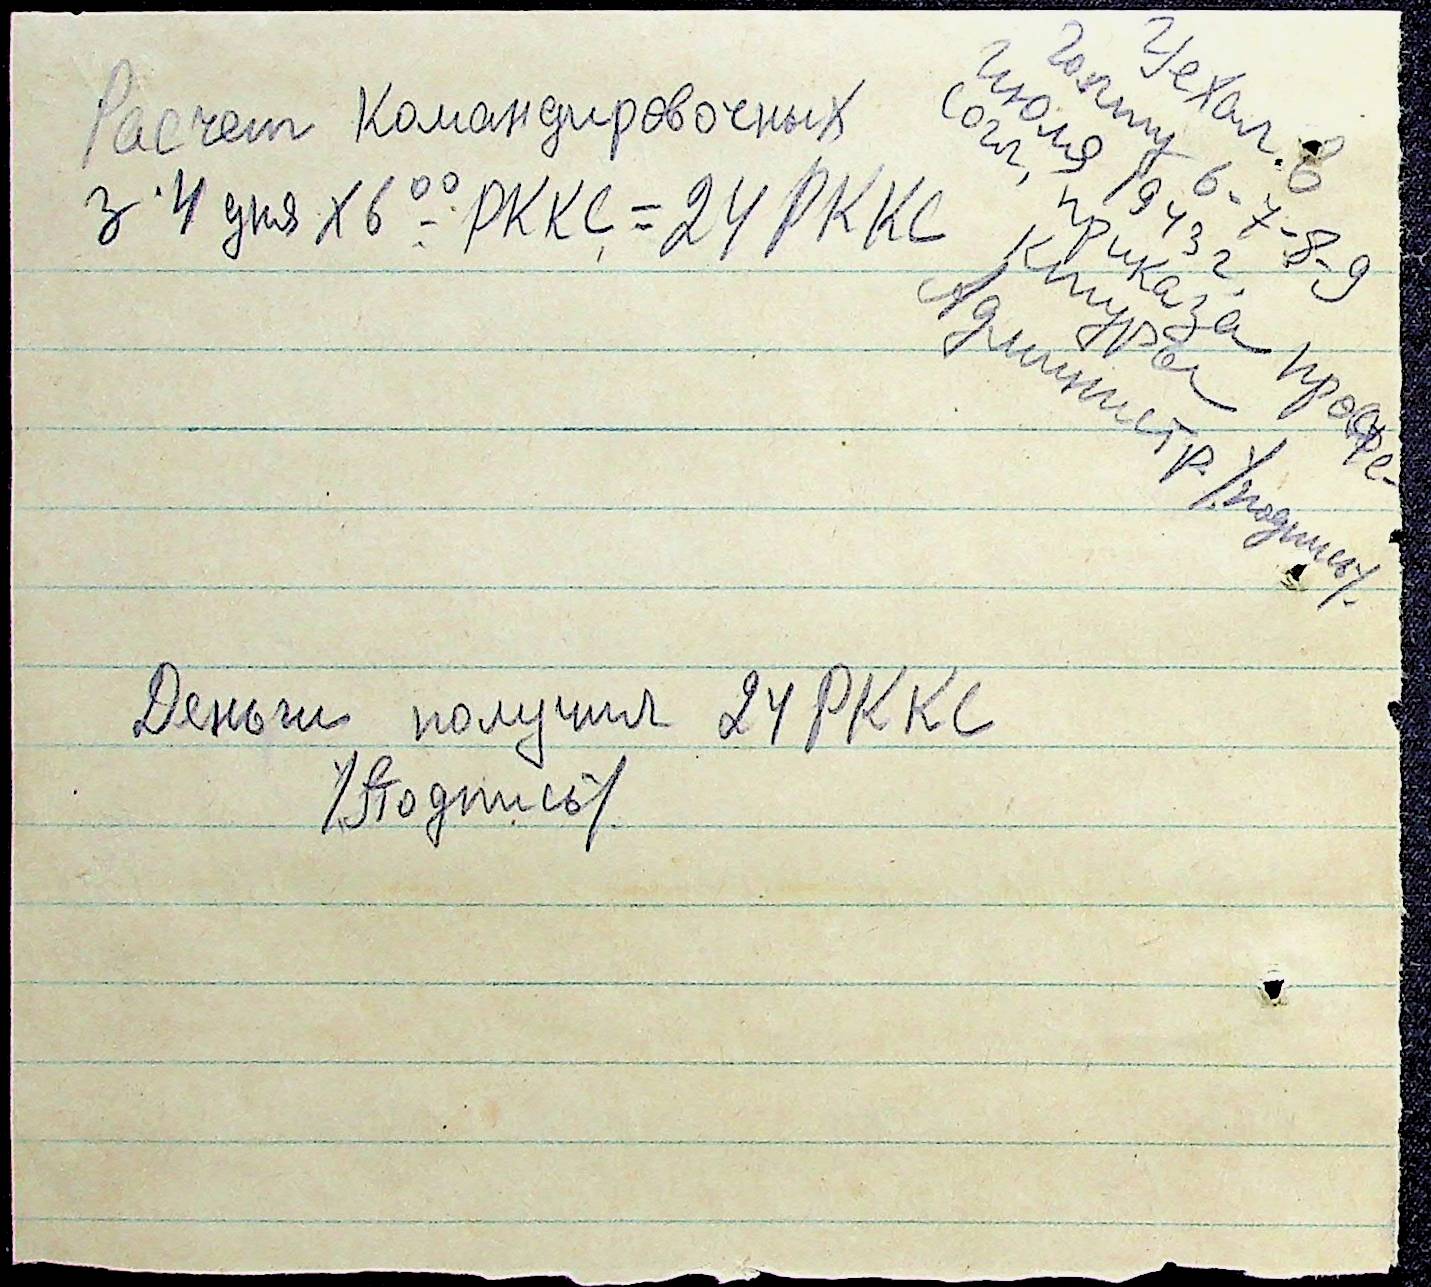 Расчет Командировочных
з 4 дня х 6⁰⁰ РККС, = 24 РККС
Уехал. в
Гоппу 6-7-8-9
Июля 1943 г.
согл, приказа профе-
ктура
Администр. /подпись/.
Деньги получил 24 РККС
/Подпись/.